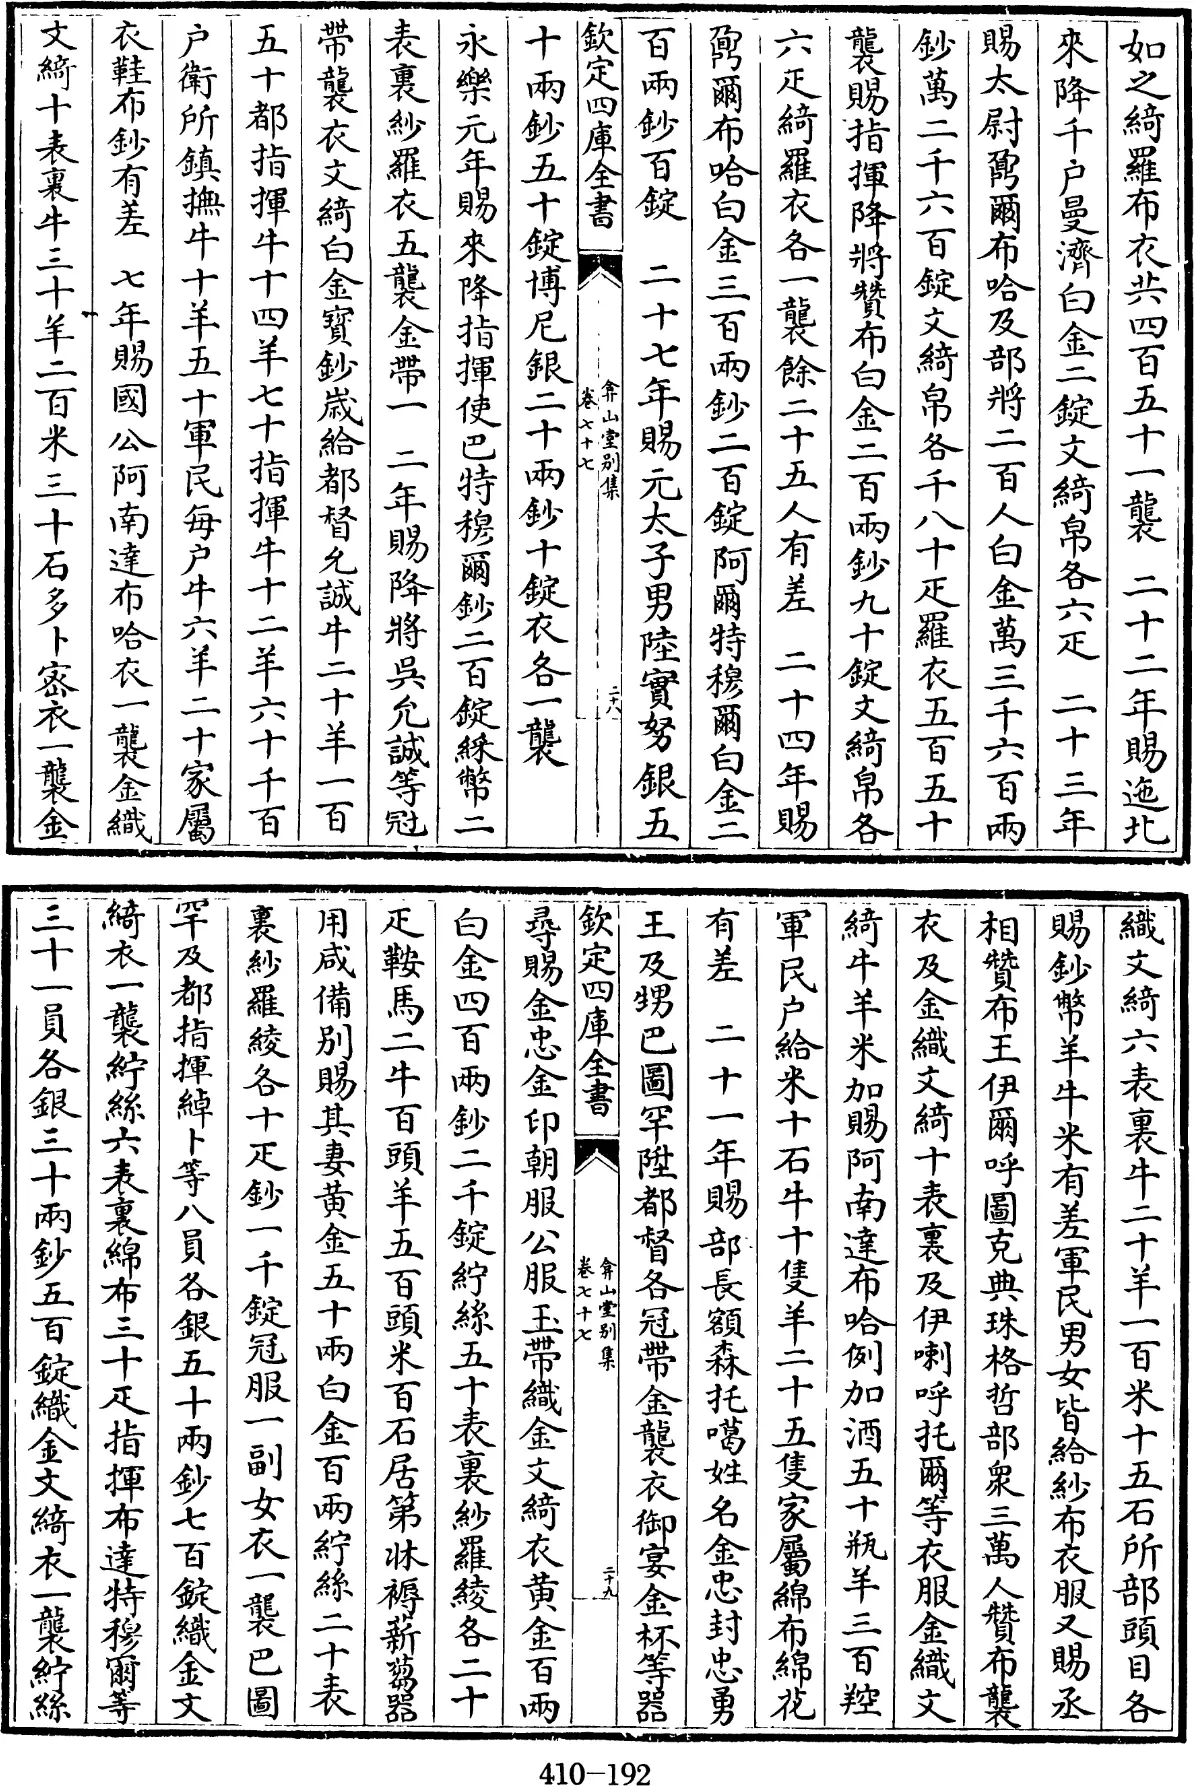 如之綺羅布衣共四百五十一襲　二十二年賜迤北
來降千户曼濟白金二錠文綺帛各六疋　二十三年
賜太尉鼐爾布哈及部將二百人白金萬三千六百兩
鈔萬二千六百錠文綺帛各千八十疋羅衣五百五十
襲賜指揮降將贊布白金二百兩鈔九十錠文綺帛各
六疋綺羅衣各一襲餘二十五人有差　二十四年賜
鼐爾布哈白金三百兩鈔二百錠阿爾特穆爾白金二
百兩鈔百錠　二十七年賜元太子男陸實努銀五
欽定四庫全書
弇山堂别集
卷七十七
二十八
十兩鈔五十錠博尼銀二十兩鈔十錠衣各一襲
永樂元年賜來降指揮使巴特穆爾鈔二百錠綵幣二
表裏紗羅衣五襲金帶一　二年賜降將吳允誠等冠
帶襲衣文綺白金寳鈔歲給都督允誠牛二十羊一百
五十都指揮牛十四羊七十指揮牛十二羊六十千百
户衛所鎮撫牛十羊五十軍民每户牛六羊二十家屬
衣鞋布鈔有差　七年賜國公阿南達布哈衣一襲金織
文綺十表裏牛三十羊二百米三十石多卜密衣一襲金
織文綺六表裏牛二十羊一百米十五石所部頭目各
賜鈔幣羊牛米有差軍民男女皆給紗布衣服又賜丞
相贊布王伊爾呼圖克典珠格哲部衆三萬人贊布襲
衣及金織文綺十表裏及伊喇呼托爾等衣服金織文
綺牛羊米加賜阿南達布哈例加酒五十瓶羊三百羫
軍民户給米十石牛十隻羊二十五隻家屬綿布綿花
有差　二十一年賜部長額森托噶姓名金忠封忠勇
王及甥巴圖罕陞都督各冠帶金襲衣御宴金杯等器
欽定四庫全書
弇山堂别集
卷七十七
二十九
尋賜金忠金印朝服公服玉帶織金文綺衣黄金百兩
白金四百兩鈔二千錠紵絲五十表裏紗羅綾各二十
疋鞍馬二牛百頭羊五百頭米百石居第牀褥薪芻器
用咸備别賜其妻黄金五十兩白金百兩紵絲二十表
裏紗羅綾各十疋鈔一千錠冠服一副女衣一襲巴圖
罕及都指揮綽卜等八員各銀五十兩鈔七百錠織金文
綺衣一襲紵絲六表裏綿布三十疋指揮布達特穆爾等
三十一員各銀三十兩鈔五百錠織金文綺衣一襲紵絲
410-192